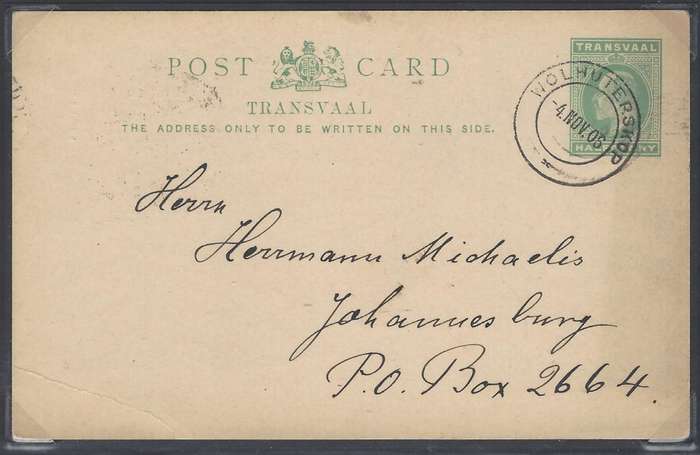 POST CARD
TRANSVAAL
THE ADDRESS ONLY TO BE WRITTEN ON THIS SIDE.
TRANSVAAL
HALFPENNY
WOLHUTERSKOP
-4.NOV.06
Herrn
Herrmann Michaelis
Johannesburg
P.O. Box 2664.